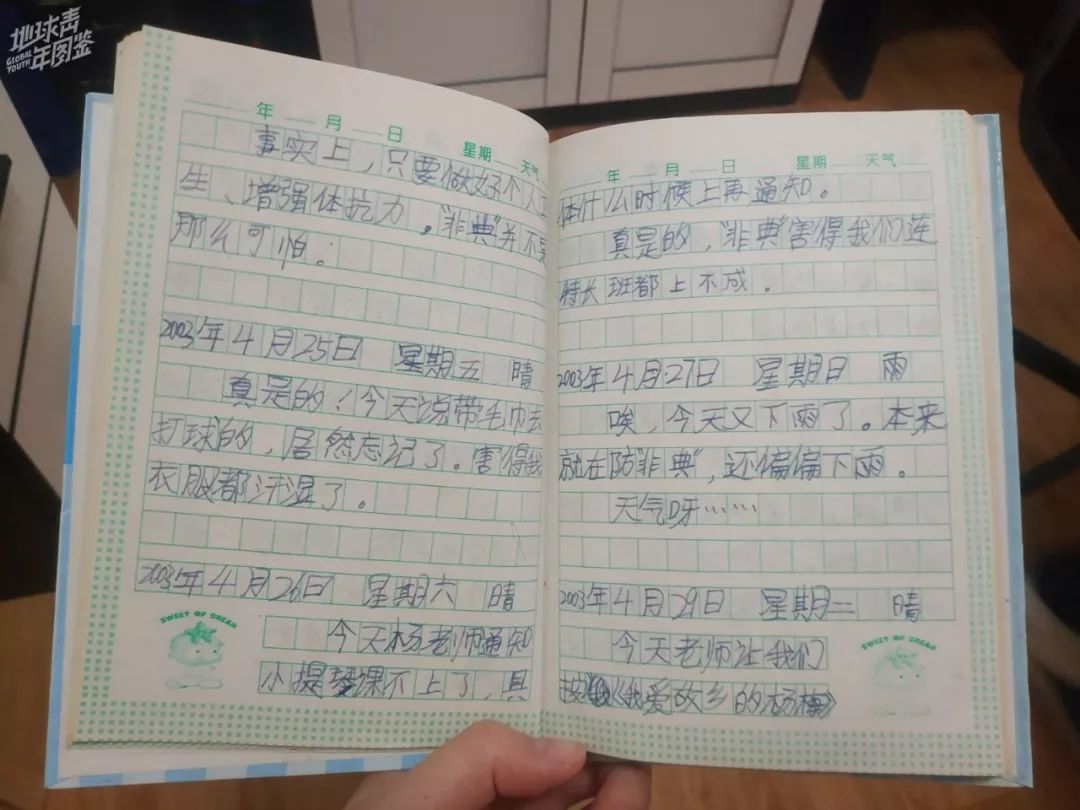 地球青
年图鉴
GLOBAL
YOUTH
年 月 日 星期 天气
事实上，只要做好个人卫
生、增强体抗力，“非典”并不是
那么可怕。
2003年4月25日 星期五 晴
真是的！今天说带毛巾去
打球的，居然忘记了。害得我
衣服都汗湿了。
2003年4月26日 星期六 晴
今天杨老师通知
小提琴课不上了，具
SWEET OF DREAM
年 月 日 星期 天气
体什么时候上再通知。
真是的，“非典”害得我们连
特长班都上不成。
2003年4月27日 星期日 雨
唉，今天又下雨了。本来
就在防“非典”，还偏偏下雨。
天气呀……
2003年4月29日 星期二 晴
今天老师让我们
按《我爱故乡的杨梅》
SWEET OF DREAM